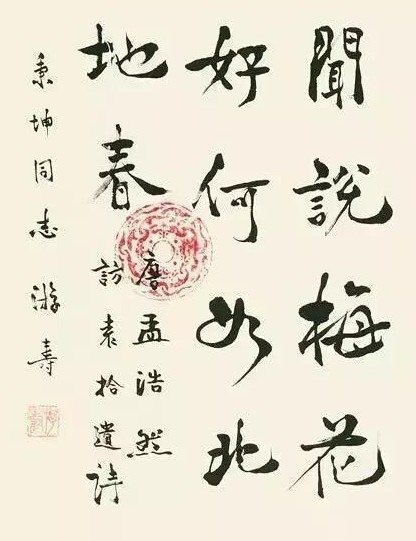 聞說梅花
好何如北
地春
唐孟浩然
訪袁拾遺詩
秉坤同志 游壽